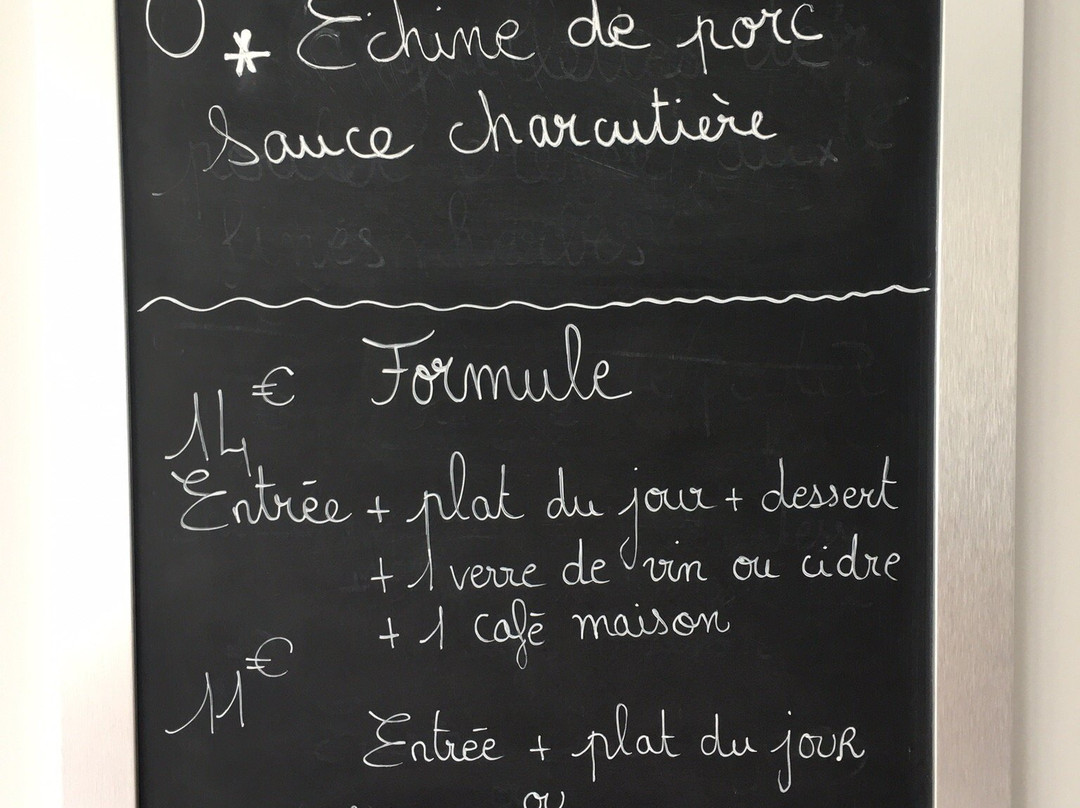 * Echine de porc
Sauce charcutière
Formule
14€
Entrée + plat du jour + dessert
+ 1 verre de vin ou cidre
+ 1 café maison
11€
Entrée + plat du jour
ou